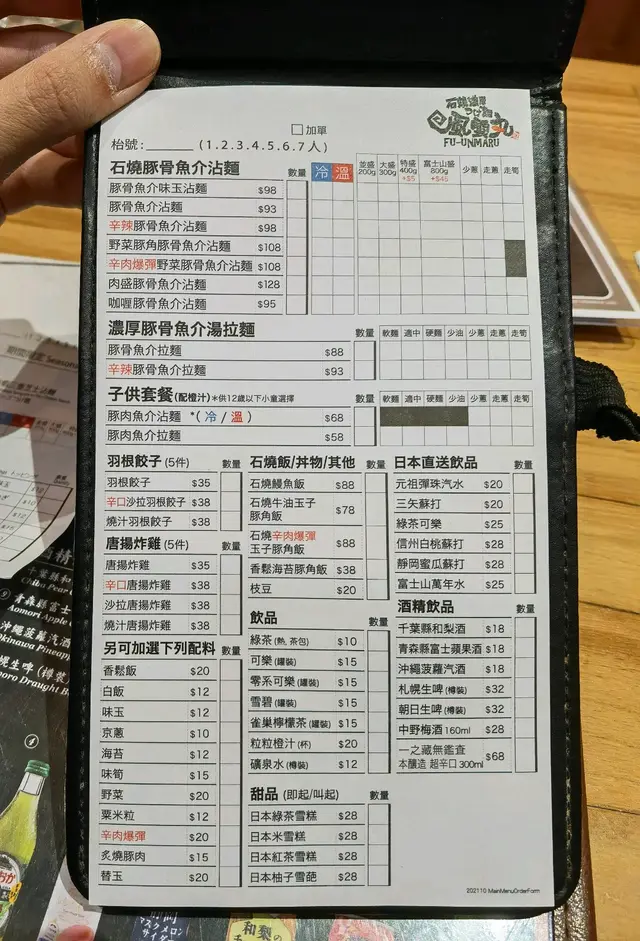 加單
石燒濃厚
つけ麺
風雲丸
FU-UNMARU
枱號:______ (1.2.3.4.5.6.7人)
石燒豚骨魚介沾麵 數量 冷 溫 並盛200g 大盛300g 特盛400g +$5 富士山盛800g +$45 少蔥 走蔥 走筍
豚骨魚介味玉沾麵 $98
豚骨魚介沾麵 $93
辛辣豚骨魚介沾麵 $98
野菜豚角豚骨魚介沾麵 $108
辛肉爆彈野菜豚骨魚介沾麵 $108
肉盛豚骨魚介沾麵 $128
咖喱豚骨魚介沾麵 $95
濃厚豚骨魚介湯拉麵 數量 軟麵 適中 硬麵 少油 少蔥 走蔥 走筍
豚骨魚介拉麵 $88
辛辣豚骨魚介拉麵 $93
子供套餐(配橙汁) *供12歲以下小童選擇 數量 軟麵 適中 硬麵 少油 少蔥 走蔥 走筍
豚肉魚介沾麵 *(冷/溫) $68
豚肉魚介拉麵 $58
羽根餃子 (5件) 數量
羽根餃子 $35
辛口沙拉羽根餃子 $38
燒汁羽根餃子 $38
唐揚炸雞 (5件) 數量
唐揚炸雞 $35
辛口唐揚炸雞 $38
沙拉唐揚炸雞 $38
燒汁唐揚炸雞 $38
另可加選下列配料 數量
香鬆飯 $20
白飯 $12
味玉 $12
京蔥 $10
海苔 $12
味筍 $15
野菜 $20
粟米粒 $12
辛肉爆彈 $20
炙燒豚肉 $15
替玉 $20
石燒飯/丼物/其他 數量
石燒鰻魚飯 $88
石燒牛油玉子
豚角飯 $78
石燒辛肉爆彈
玉子豚角飯 $88
香鬆海苔豚角飯 $38
枝豆 $20
飲品 數量
綠茶 (熱, 茶包) $10
可樂 (罐裝) $15
零系可樂 (罐裝) $15
雪碧 (罐裝) $15
雀巢檸檬茶 (罐裝) $15
粒粒橙汁 (杯) $20
礦泉水 (樽裝) $12
甜品 (即起/叫起) 數量
日本綠茶雪糕 $28
日本米雪糕 $28
日本紅茶雪糕 $28
日本柚子雪葩 $28
日本直送飲品 數量
元祖彈珠汽水 $20
三矢蘇打 $20
綠茶可樂 $25
信州白桃蘇打 $28
靜岡蜜瓜蘇打 $28
富士山萬年水 $25
酒精飲品 數量
千葉縣和梨酒 $18
青森縣富士蘋果酒 $18
沖繩菠蘿汽酒 $18
札幌生啤 (樽裝) $32
朝日生啤 (樽裝) $32
中野梅酒 160ml $28
一之藏無鑑查
本釀造 超辛口 300ml $68
202110 MainMenuOrderForm